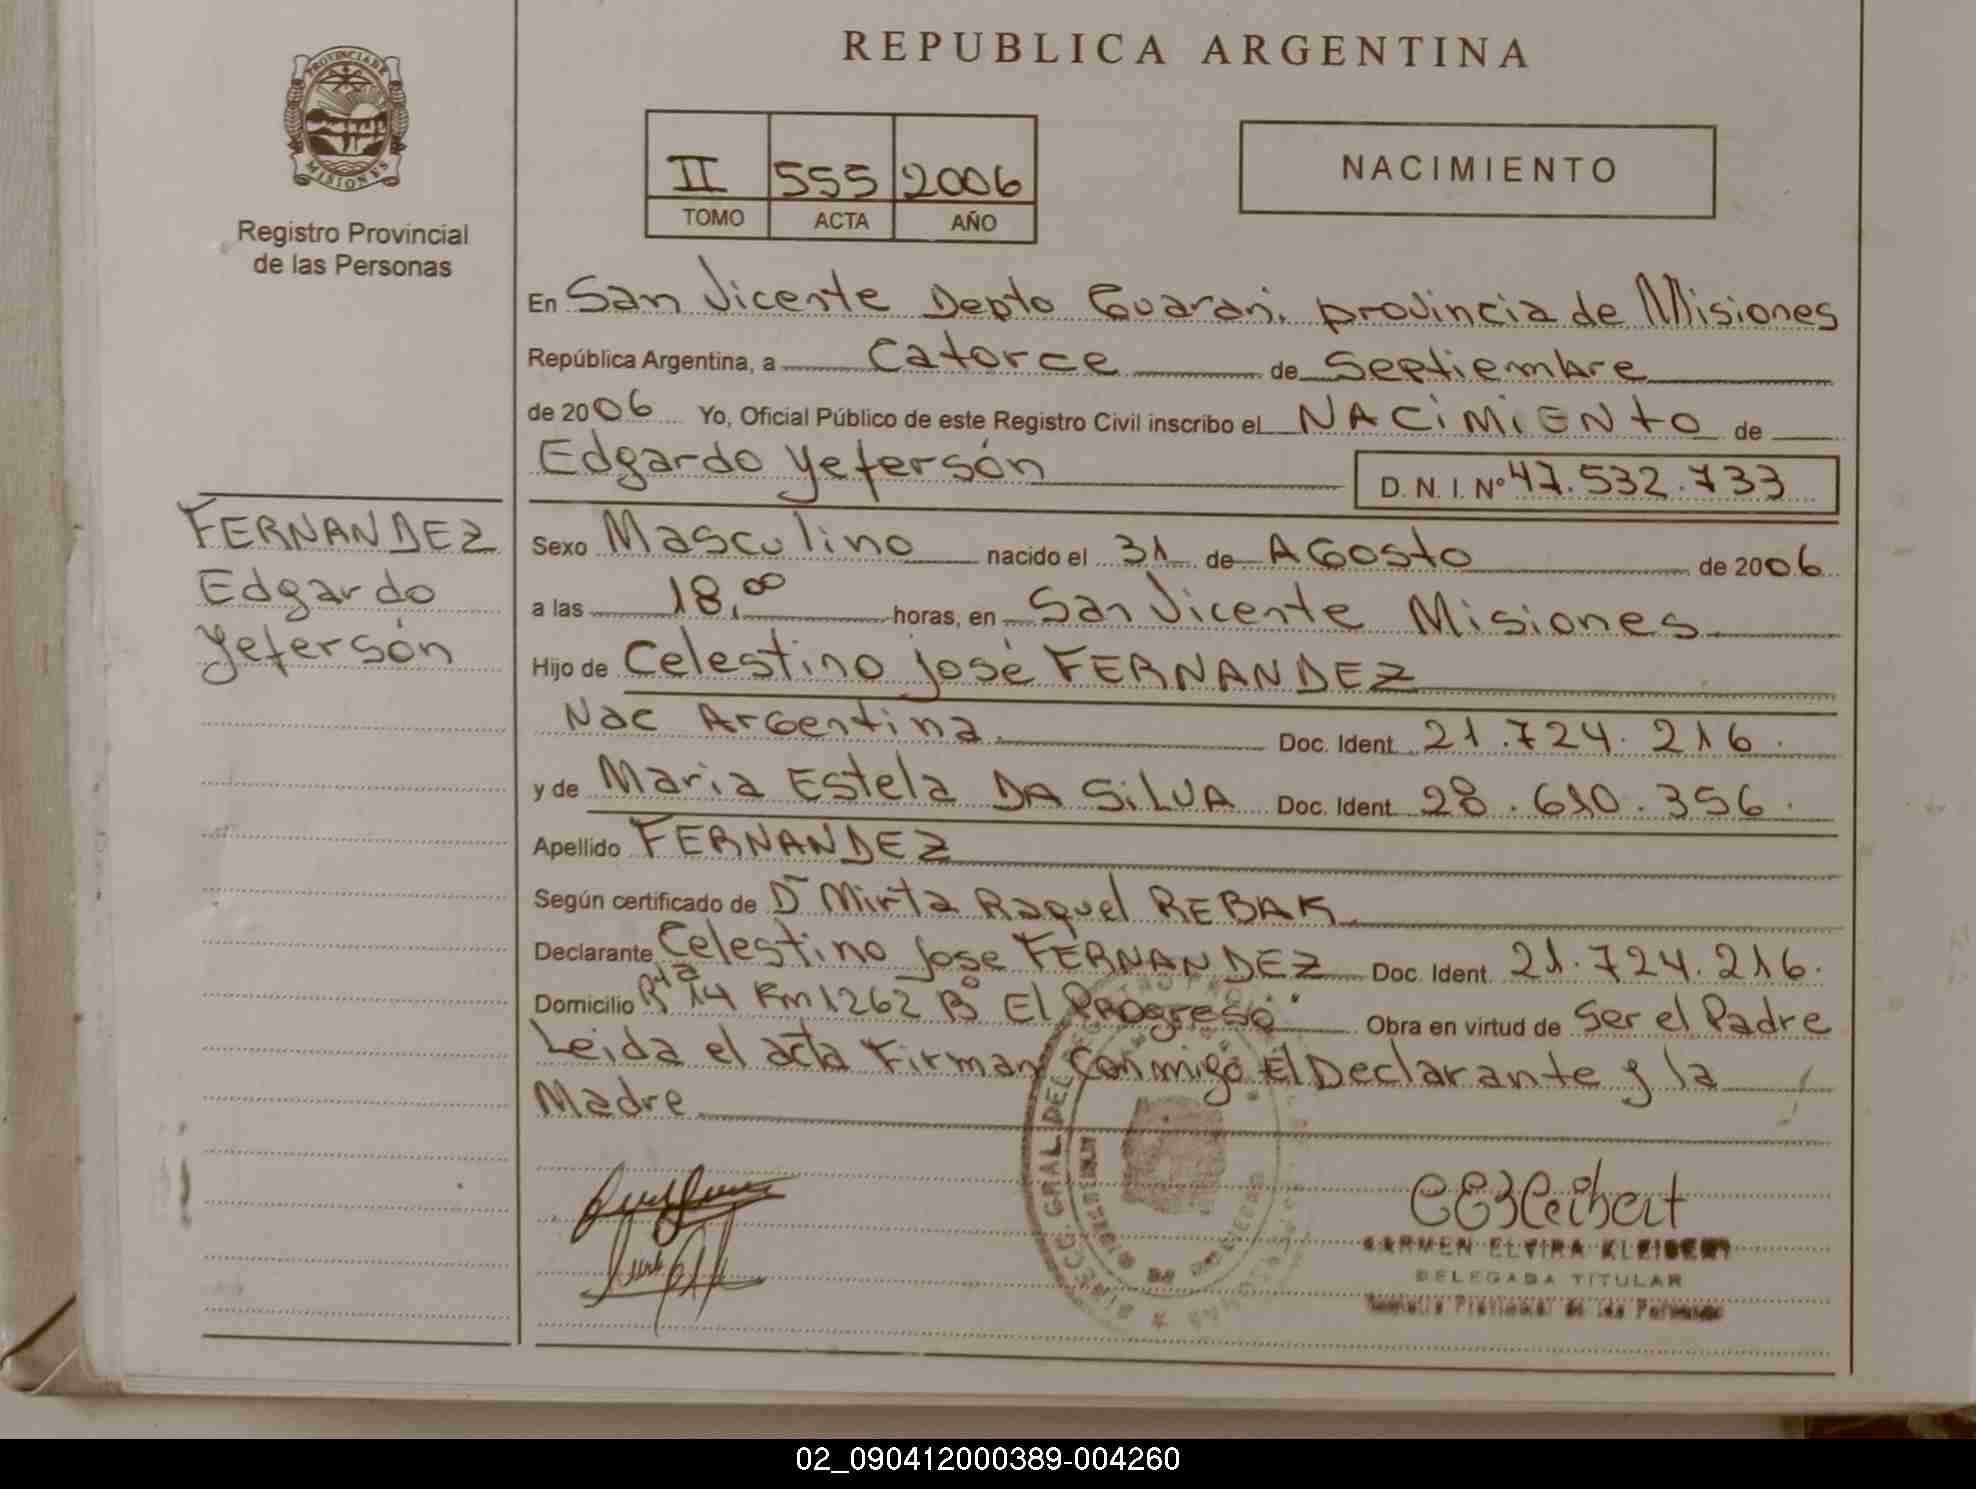 REPUBLICA ARGENTINA
PROVINCIA DE MISIONES
Registro Provincial
de las Personas
II 555 2006
TOMO ACTA AÑO
NACIMIENTO
En San Vicente Depto Guaraní. provincia de Misiones
República Argentina, a Catorce de Septiembre
de 2006 Yo, Oficial Público de este Registro Civil inscribo el NACIMIENTO de
Edgardo Yefersón D. N. I. Nº 47.532.733
FERNANDEZ
Edgardo
Yefersón
Sexo Masculino nacido el 31 de AGosto de 2006
a las 18,00 horas, en San Vicente Misiones
Hijo de Celestino José FERNANDEZ
Nac ArGentina. Doc. Ident. 21.724.216.
y de Maria Estela DA SILVA Doc. Ident. 28.610.356.
Apellido FERNANDEZ
Según certificado de Dra Mirta Raquel REBAK
Declarante Celestino Jose FERNANDEZ Doc. Ident. 21.724.216.
Domicilio Rta 14 Km 1262 Bº El Progreso" Obra en virtud de Ser el Padre
Leida el acta Firman Conmigo El Declarante y la
Madre
CEKleibert
CARMEN ELVIRA KLEIBERT
DELEGADA TITULAR
Registro Provincial de las Personas
02_090412000389-004260